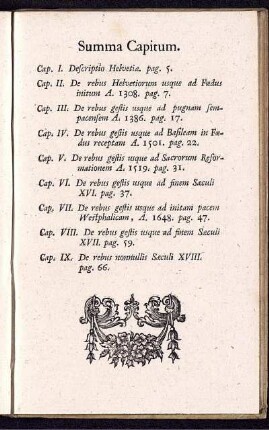 Summa Capitum.
Cap. I. Descriptio Helvetiæ. pag. 5.
Cap. II. De rebus Helvetiorum usque ad Fœdus
initum A. 1308. pag. 7.
Cap. III. De rebus gestis usque ad pugnam sem-
pacensem A. 1386. pag. 17.
Cap. IV. De rebus gestis usque ad Basileam in Fœ-
dus receptam A. 1501. pag. 22.
Cap. V. De rebus gestis usque ad Sacrorum Refor-
mationem A. 1519. pag. 31.
Cap. VI. De rebus gestis ad finem Sæculi
XVI. pag. 37.
Cap. VII. De rebus gestis usque ad initam pacem
Westphalicam, A. 1648. pag. 47.
Cap. VIII. De rebus gestis usque ad finem Sæculi
XVII. pag. 59.
Cap. IX. De rebus nonnullis Sæculi XVIII.
pag. 66.